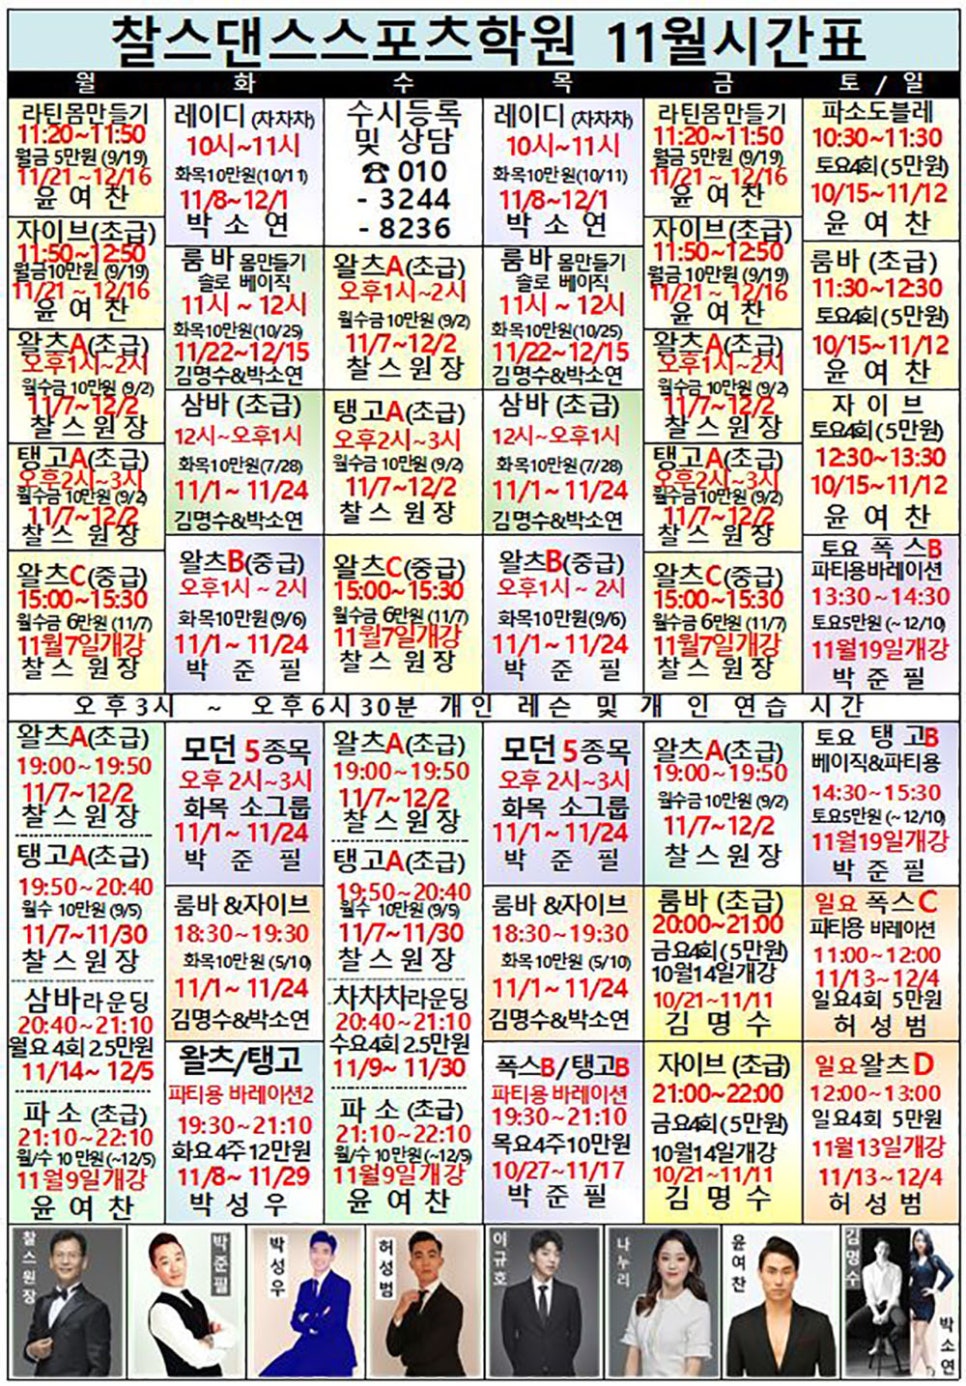 찰스댄스스포츠학원 11월시간표
월 화 수 목 금 토 / 일
라틴몸만들기
11:20~11:50
월금 5만원 (9/19)
11/21 ~ 12/16
윤 여 찬
자이브(초급)
11:50~12:50
월금10만원 (9/19)
11/21 ~ 12/16
윤 여 찬
왈츠A(초급)
오후1시~2시
월수금 10만원 (9/2)
11/7~12/2
찰 스 원 장
탱고A(초급)
오후2시~3시
월수금 10만원 (9/2)
11/7~12/2
찰 스 원 장
왈츠C(중급)
15:00~15:30
월수금 6만원 (11/7)
11월7일개강
찰 스 원 장
레이디 (차차차)
10시~11시
화목10만원(10/11)
11/8~12/1
박 소 연
룸바 몸만들기
솔로 베이직
11시 ~ 12시
화목10만원(10/25)
11/22~12/15
김명수&박소연
삼바 (초급)
12시~오후1시
화목10만원(7/28)
11/1~ 11/24
김명수&박소연
왈츠B(중급)
오후1시 ~ 2시
화목10만원(9/6)
11/1~ 11/24
박 준 필
수시등록
및 상담
☎ 010
- 3244
- 8236
왈츠A(초급)
오후1시~2시
월수금 10만원 (9/2)
11/7~12/2
찰 스 원 장
탱고A(초급)
오후2시~3시
월수금 10만원 (9/2)
11/7~12/2
찰 스 원 장
왈츠C(중급)
15:00~15:30
월수금 6만원 (11/7)
11월7일개강
찰 스 원 장
레이디 (차차차)
10시~11시
화목10만원(10/11)
11/8~12/1
박 소 연
룸바 몸만들기
솔로 베이직
11시 ~ 12시
화목10만원(10/25)
11/22~12/15
김명수&박소연
삼바 (초급)
12시~오후1시
화목10만원(7/28)
11/1~ 11/24
김명수&박소연
왈츠B(중급)
오후1시 ~ 2시
화목10만원(9/6)
11/1~ 11/24
박 준 필
라틴몸만들기
11:20~11:50
월금 5만원 (9/19)
11/21 ~ 12/16
윤 여 찬
자이브(초급)
11:50~12:50
월금 10만원 (9/19)
11/21 ~ 12/16
윤 여 찬
왈츠A(초급)
오후1시~2시
월수금 10만원 (9/2)
11/7~12/2
찰 스 원 장
탱고A(초급)
오후2시~3시
월수금 10만원 (9/2)
11/7~12/2
찰 스 원 장
왈츠C(중급)
15:00~15:30
월수금 6만원 (11/7)
11월7일개강
찰 스 원 장
파소도블레
10:30~11:30
토요4회 (5만원)
10/15~11/12
윤 여 찬
룸바 (초급)
11:30~12:30
토요4회 (5만원)
10/15~11/12
윤 여 찬
자 이 브
토요4회 (5만원)
12:30~13:30
10/15~11/12
윤 여 찬
토요 폭 스B
파티용바레이션
13:30 ~ 14:30
토요5만원 (~ 12/10)
11월19일개강
박 준 필
오후3시 ~ 오후6시30분 개인 레슨 및 개 인 연습 시간
왈츠A(초급)
19:00~19:50
11/7~12/2
찰 스 원 장
탱고A(초급)
19:50~20:40
월수 10만원 (9/5)
11/7~11/30
찰 스 원 장
삼바라운딩
20:40~21:10
월요 4회 2.5만원
11/14~ 12/5
파 소 (초급)
21:10~22:10
월/수 10만원 (~12/5)
11월9일개강
윤 여 찬
모던 5종목
오후 2시~3시
화목 소그룹
11/1~ 11/24
박 준 필
룸바 &자이브
18:30~19:30
화목10만원 (5/10)
11/1~ 11/24
김명수&박소연
왈츠/탱고
파티용 바레이션2
19:30~21:10
화요4주12만원
11/8~ 11/29
박 성 우
왈츠A(초급)
19:00~19:50
11/7~12/2
찰 스 원 장
탱고A(초급)
19:50~20:40
월수 10만원 (9/5)
11/7~11/30
찰 스 원 장
차차차라운딩
20:40~21:10
수요4회 2.5만원
11/9~ 11/30
파 소 (초급)
21:10~22:10
월/수 10만원 (~12/5)
11월9일개강
윤 여 찬
모던 5종목
오후 2시~3시
화목 소그룹
11/1~ 11/24
박 준 필
룸바 &자이브
18:30~19:30
화목10만원 (5/10)
11/1~ 11/24
김명수&박소연
폭스B/탱고B
파티용 바레이션
19:30~21:10
목요4주10만원
10/27~11/17
박 준 필
왈츠A(초급)
19:00~19:50
월수금 10만원 (9/2)
11/7~12/2
찰 스 원 장
룸바 (초급)
20:00~21:00
금요4회 (5만원)
10월14일개강
10/21~11/11
김 명 수
자이브 (초급)
21:00~22:00
금요4회 (5만원)
10월14일개강
10/21~11/11
김 명 수
토요 탱 고B
베이직&파티용
14:30~15:30
토요5만원 (~ 12/10)
11월19일개강
박 준 필
일요 폭스C
파티용 바레이션
11:00~12:00
11/13~12/4
일요4회 5만원
허 성 범
일요왈츠D
12:00~13:00
일요4회 5만원
11월13일개강
11/13~12/4
허 성 범
찰스원장
박준필
박성우
허성범
이규호
나누리
윤여찬
김명수
박소연